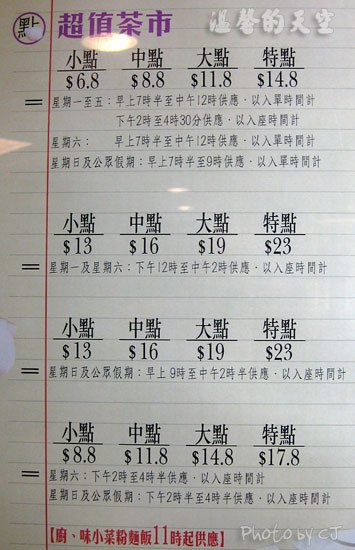 溫馨的天空
點 超值茶市
小點 中點 大點 特點
$6.8 $8.8 $11.8 $14.8
星期一至五：早上7時半至中午12時供應．以入單時間計
下午2時至4時30分供應．以入座時間計
星期六： 早上7時半至中午12時供應．以入單時間計
星期日及公眾假期：早上7時半至9時供應．以入單時間計
小點 中點 大點 特點
$13 $16 $19 $23
星期一及星期六：下午12時至中午2時供應．以入座時間計
小點 中點 大點 特點
$13 $16 $19 $23
星期日及公眾假期：早上9時至中午2時半供應．以入座時間計
小點 中點 大點 特點
$8.8 $11.8 $14.8 $17.8
星期六：下午2時至4時半供應．以入座時間計
星期日及公眾假期：下午2時半至4時半供應．以入座時間計
【廚、味小菜粉麵飯11時起供應】
Photo by CJ